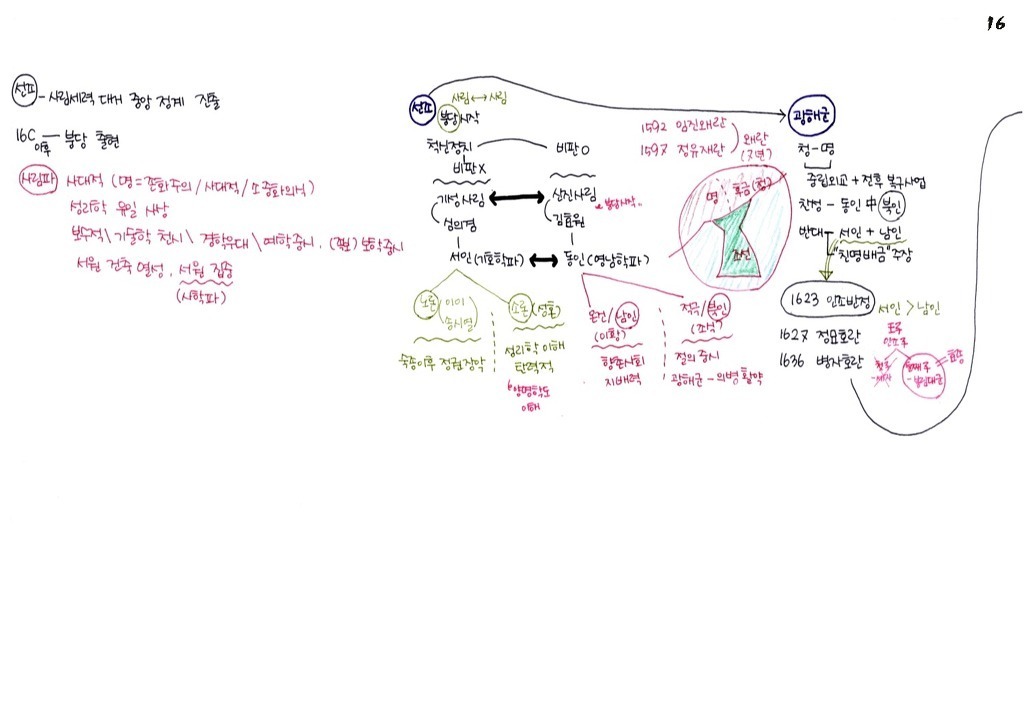 16
선조 - 사림세력 대거 중앙 정계 진출
16C 이후 — 붕당 출현
사림파 사대적 (명 = 존화주의 / 사대적 / 소중화의식)
성리학 유일 사상
보수적 \ 기술학 천시 \ 경학우대 \ 예학중시, (족보) 보학중시
서원 건축 열성, 서원 집중
(사학파)
선조
사림 ↔ 사림
붕당시작
척신정치
비판 X
비판 O
기성사림 ↔ 신진사림
* 붕당시작..
심의겸
김효원
서인 (기호학파) ↔ 동인 (영남학파)
노론 (이이 \ 송시열)
숙종이후 정권장악
소론 (성혼)
성리학 이해
탄력적
양명학도
이해
온건 / 남인
(이황)
향촌사회
지배력
적극 / 북인
(조식)
절의 중시
광해군 - 의병 활약
1592 임진왜란
1597 정유재란
왜란
(7년)
명 후금 (청)
조선
광해군
청 - 명
중립외교 + 전후 복구사업
찬성 - 동인 中 북인
반대 - 서인 + 남인
"친명배금" 주장
1623 인조반정
서인 > 남인
1627 정묘호란
1636 병자호란
인조 후
봉림대군
= 효종